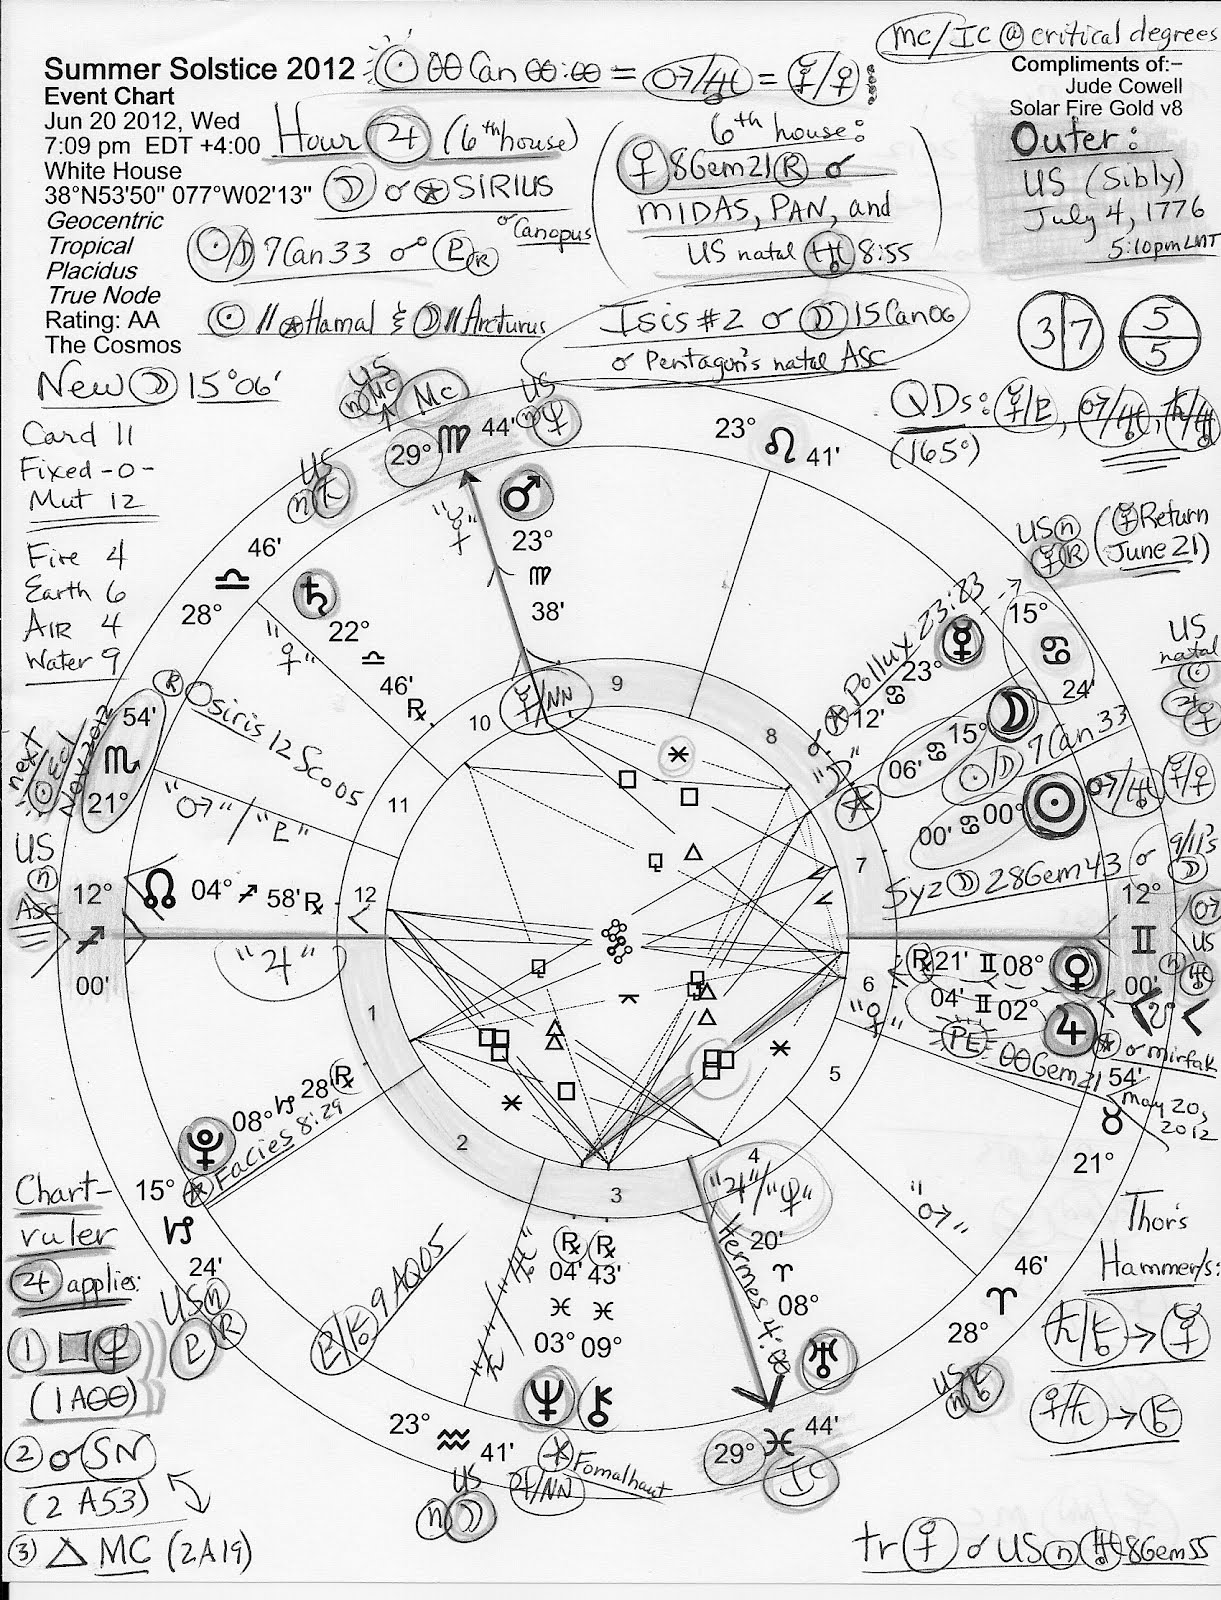 MC/IC @ critical degrees
Summer Solstice 2012
☉ 00 Can 00:00 = ♂/♅ = ☿/♀
Compliments of:-
Jude Cowell
Solar Fire Gold v8
Event Chart
Jun 20 2012, Wed
7:09 pm EDT +4:00
White House
38°N53'50" 077°W02'13"
Geocentric
Tropical
Placidus
True Node
Rating: AA
The Cosmos
Hour ♃ (6th house)
☽ ☌ ✶ SIRIUS
☌ Canopus
☉/☽ 7Can33 ☍ ♇ R
☉ // ✶ Hamal & ☽ // Arcturus
6th house:
♀ 8Gem21 R ☌
MIDAS, PAN, and
US natal ♅ 8:55
Outer:
US (Sibly)
July 4, 1776
5:10pm LMT
Isis #2 ☌ ☽ 15Can06
☌ Pentagon's natal Asc
3 7
5
5
New ☽ 15°06'
Card 11
Fixed -0-
Mut 12
Fire 4
Earth 6
AIR 4
Water 9
QDs: ☿/♇, ♂/♅, ♄/♅
(165°)
US n MC
MC
29° ♍ 44'
US n ♆
23° ♌ 41'
US n ♄
46'
♎
28°
♂
23°
♍
38'
♄
22°
♎
46'
℞
"☿"
"♀"
☿/NN
US n ☿ R
(☿ Return
June 21)
☌ ✶ Pollux 23:23
☿
23°
♋
12'
15°
♋
24'
"☽"
☽ 15° ♋ 06'
☉/☽ 7Can33
☉ 00° ♋ 00'
♂/♅ ☿/♀
US natal
☉
♃
♀
Syz ☽ 28Gem43 ☌ 9/11's ☽
R Osiris 12Sco05
54'
♏
21°
next ☉ Ecl Nov 2012
"♂"/"♇"
US n Asc
12°
♐
00'
☊ 04° ♐ 58' ℞
"♃"
12°
♊
00'
♂ US n ♅
℞ 21' ♊ 08° ♀
04' ♊ 02° ♃
"♀"
PE 00Gem21
✶ ☌ mirfak
54'
♉
21°
May 20, 2012
1
2
3
4
5
6
7
8
9
10
11
12
♇ 08° ♑ 28' ℞
✶ Facies 8:29
15°
♑
24'
US n ♇ R
♇/⚷ 9AQ05
"♄"/"♅"
℞ ℞
04' 43'
♓ ♓
03° 09°
♆ ⚷
"♃"/"♆"
Hermes 4:00
20'
♈
08°
♅
"♂"
46'
♈
28°
US n ⚷
23° ♒ 41'
US n ☽
✶ Fomalhaut
♃/NN
29° ♓ 44'
IC
Chart-
ruler
♃ applies:
1 □ ♆
(1A00)
2 ☌ SN
(2A53)
3 △ MC (2A19)
Thor's
Hammer/s:
♄/⚷ → ☿
♀/♄ → ⚷
tr ♀ ☌ US n ♅ 8Gem55